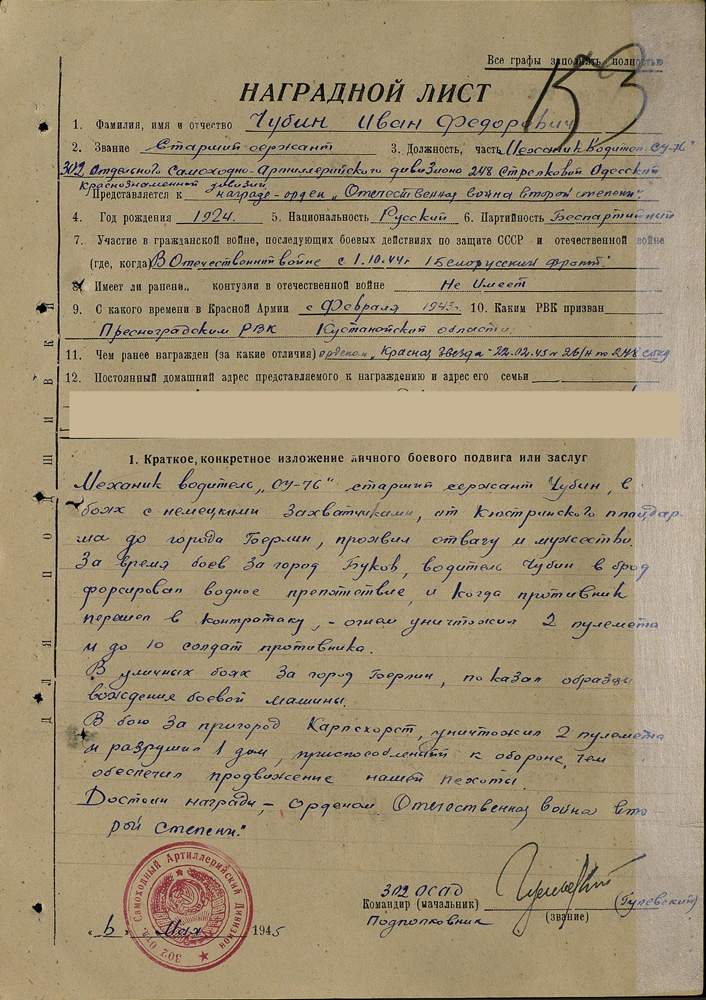 Все графы заполнять полностью
НАГРАДНОЙ ЛИСТ
1. Фамилия, имя и отчество Чубин Иван Федорович
2. Звание Старший сержант 3. Должность, часть Механик Водител. СУ-76"
302 Отдельного Самоходно-Артиллерийского дивизиона 248 Стрелковой Одесской
Краснознаменной дивизии
Представляется к награде - орден „Отечественная война второй степени".
4. Год рождения 1924. 5. Национальность Русский 6. Партийность Беспартийный
7. Участие в гражданской войне, последующих боевых действиях по защите СССР и отечественной войне
(где, когда) В Отечественной войне с 1.10.44г 1 Белорусский фронт.
8. Имеет ли ранени„ контузии в отечественной войне Не Имеет
9. С какого времени в Красной Армии с Февраля 1943г. 10. Каким РВК призван
Пресноградским РВК Кустанайской области.
11. Чем ранее награжден (за какие отличия) орденом „Красная Звезда" 22.02.45г 26/н по 248 сткд
12. Постоянный домашний адрес представляемого к награждению и адрес его семьи
ДЛЯ ПОДШИВКИ
1. Краткое, конкретное изложение личного боевого подвига или заслуг
Механик водитель „СУ-76" старший сержант Чубин, в
боях с немецкими захватчиками, от Кюстринского плацдар-
ма до города Берлин, проявил отвагу и мужество.
За время боев за город Буков, водитель Чубин в брод
форсировал водное препятствие, и когда противник
перешел в контратаку, - огнем уничтожил 2 пулемета
и до 10 солдат противника.
В уличных боях за город Берлин, показал образцы
вождение боевой машины.
В бою за пригород Карлсхорст, уничтожил 2 пулемета
и разрушил 1 дом, приспособленный к обороне, чем
обеспечил продвижение нашей пехоты.
Достоин награды, - орденом Отечественная война вто
рой степени."
302 ОСАД
Командир (начальник) (Гулевский)
Подполковник (звание)
„6" Мая 1945
302 Отд. Самоходный Артиллерийский Дивизион